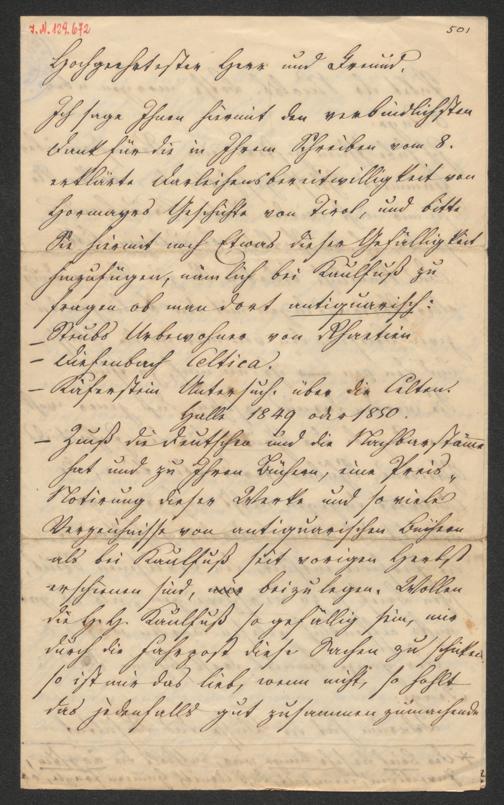 J.N. 129.672
501
Hochgeehrtester Herr und Freund.
Ich sage Ihnen hiermit den verbindlichsten
Dank für die in Ihrem Schreiben vom 8.
erklärte Darleihensbereitwilligkeit von
Hormayrs Geschichte von Tirol, und bitte
Sie hiermit noch Etwas dieser Gefälligkeit
hinzufügen, nämlich bei Kaulfuß zu
fragen ob man dort antiquarisch:
– Steubs Urbewohner von Rhaetien
– Diefenbach Celtica.
– Käferstein Untersuch. über die Celten.
Halle 1849 oder 1850.
– Zeuß die Deutschen und die Nachbarstämme
hat und zu Ihren Büchern, eine Preis„
Notirung dieser Werke und so viele
Verzeichnisse von antiquarischen Büchern
als bei Kaulfuß seit vorigen Herbst
erschienen sind, beizulegen. Wollen
die H.H. Kaulfuß so gefällig sein, mir
durch die Fahrpost diese Sachen zu schicken
so ist mir das lieb, wenn nicht, so
das jedenfalls gut zusammenzumachende